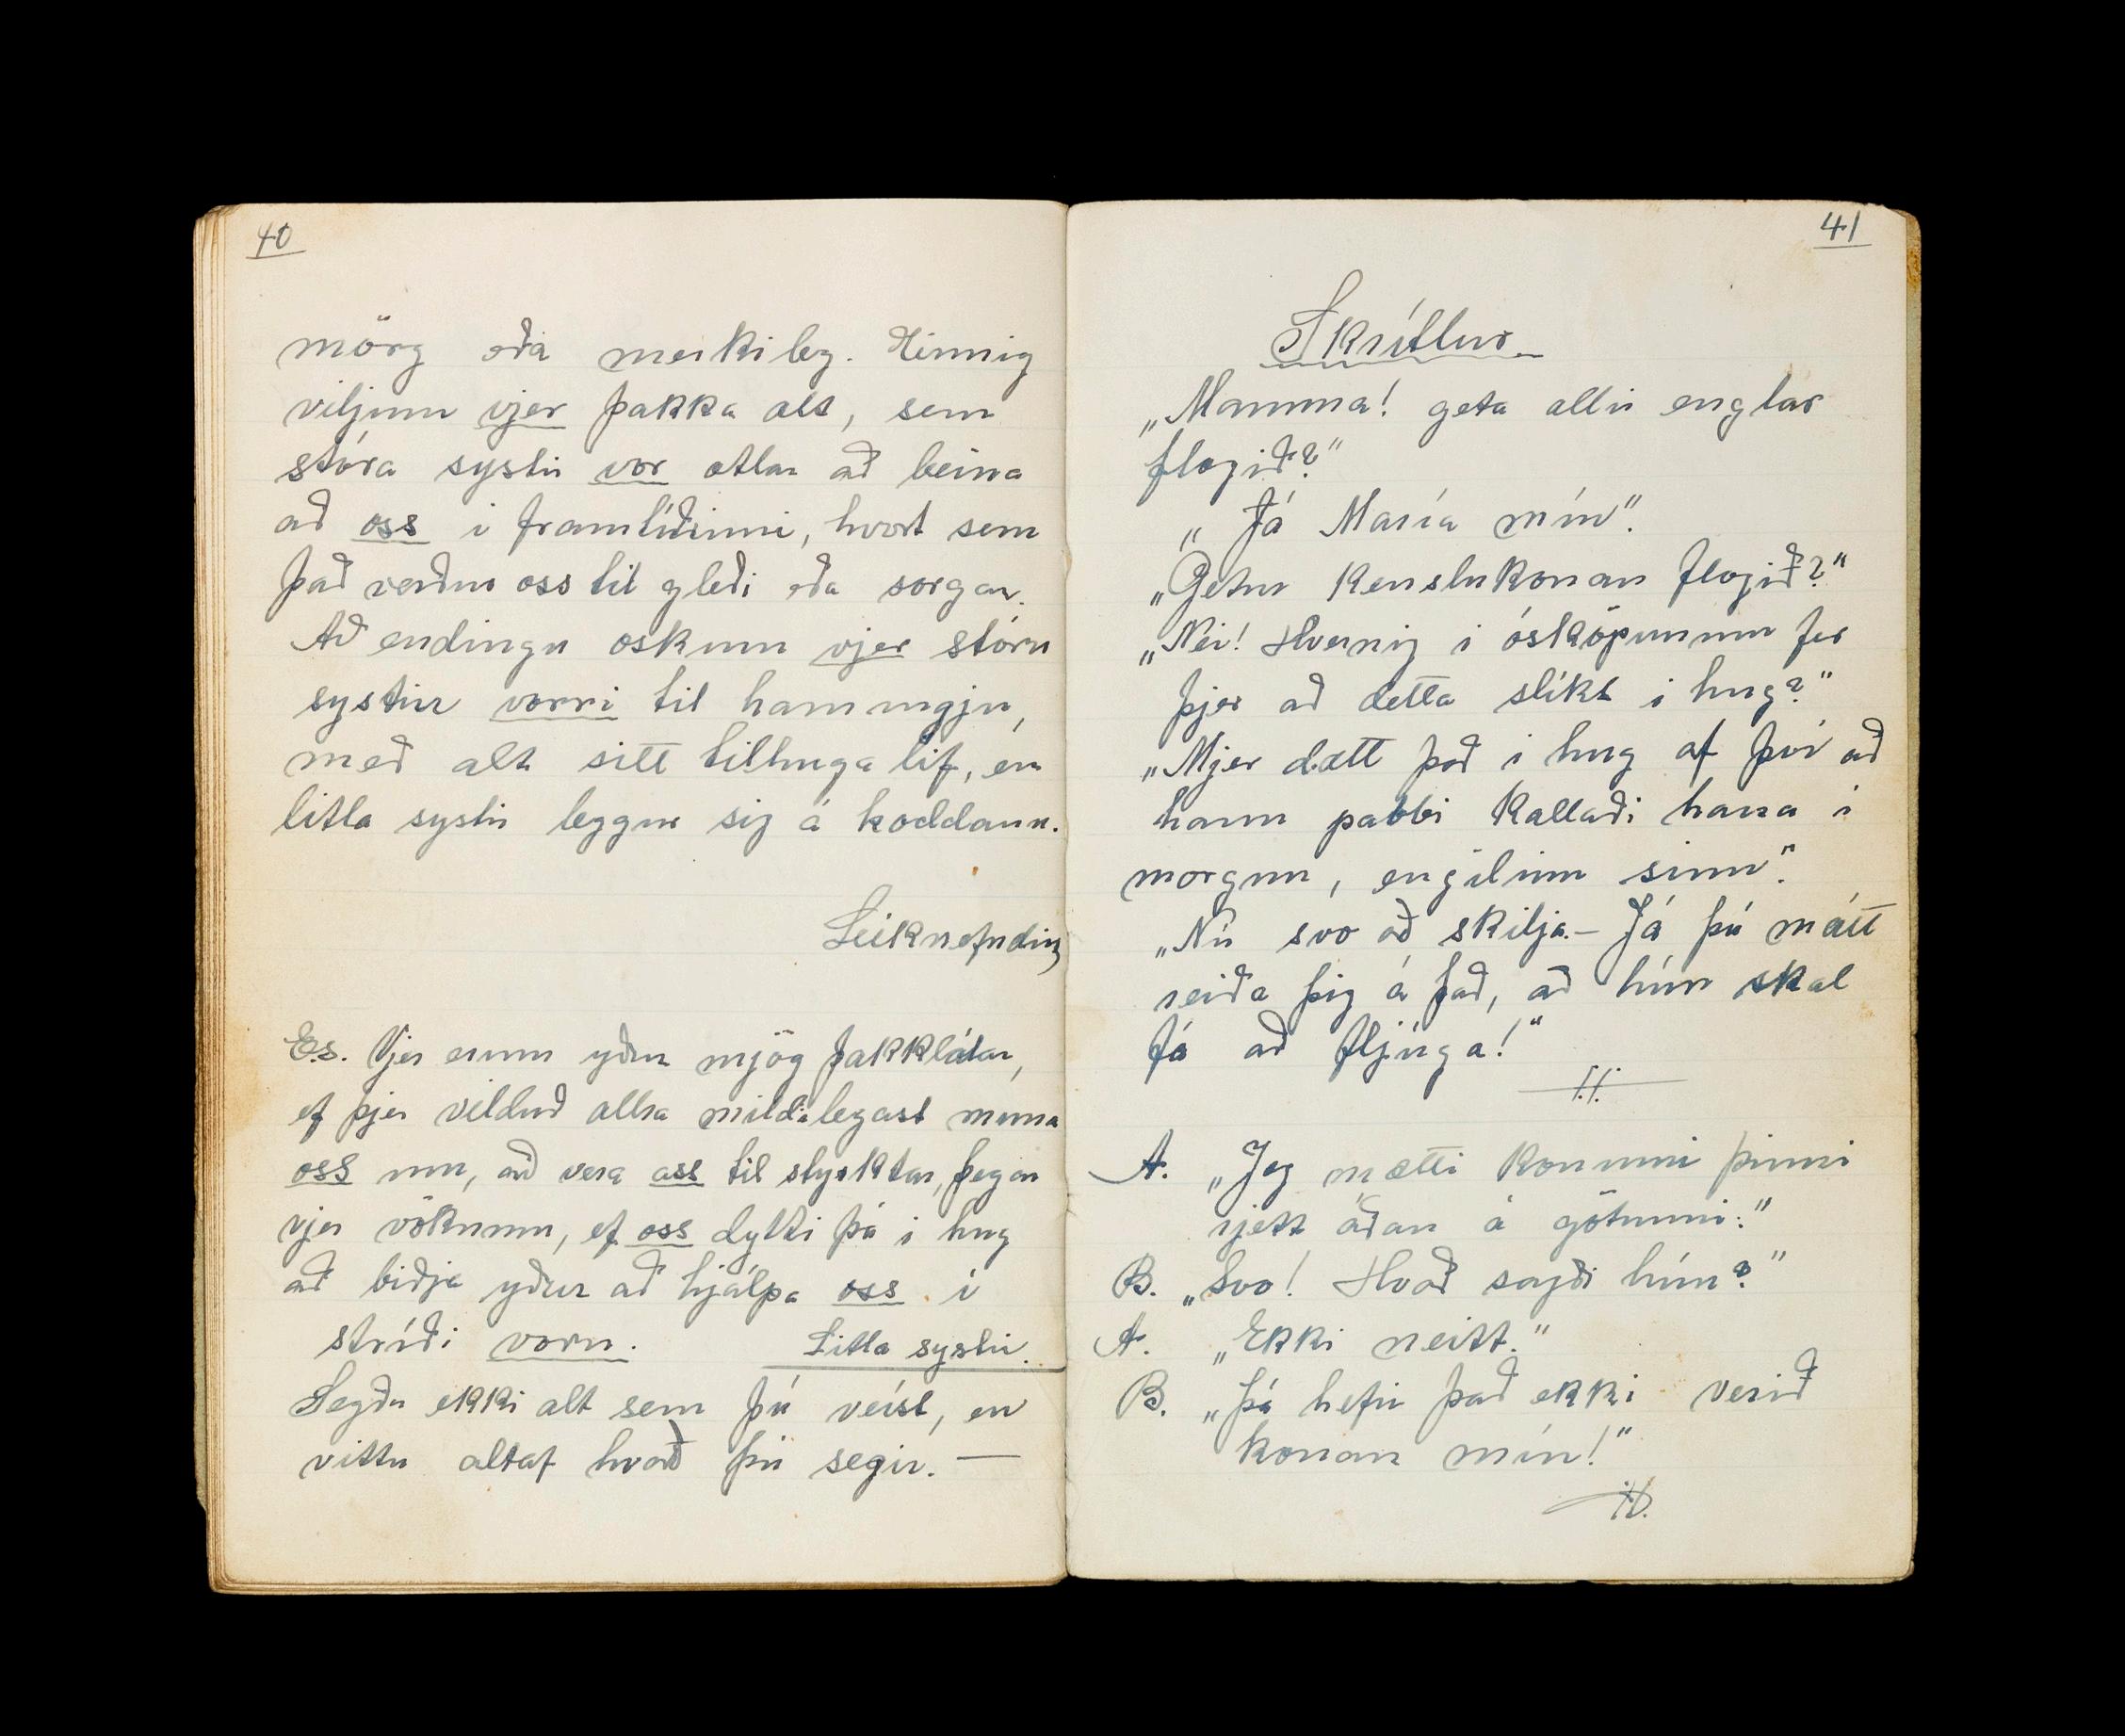 40
mörg eða merkileg. Hinnig
viljum vjer þakka alt, sem
stóra systir vor ætlar að beina
að oss í framtíðinni, hvort sem
það verður oss til gleði eða sorgar.
Að endingu oskum vjer stóru
systur vorri til hammgju,
með alt sitt tilhuga líf, en
litla systir leggur sig á koddann.
Leiknefndin
E.s. Vjer erum yður mjög þakklátar,
ef þjer vilduð allra mildilegast muna
oss um, að vera oss til styrktar, þegar
vjer vöknum, ef oss dytti þá í hug
að biðja yður að hjálpa oss í
stríði voru. Litla systir.
Segðu ekki alt sem þú veist, en
vittu altaf hvað þú segir. —
41
Skrítlur
„Mamma! geta allir englar
flogið?"
„Já María mín".
„Getur Kenslukonan flogið?"
„Nei! Hvernig í ósköpunum fer
þjer að detta slíkt í hug?"
„Mjer datt það í hug af því að
hann pabbi kallaði hana í
morgun, engilinn sinn".
„Nú svo að skilja. — Já þú mátt
reiða þig á það, að hún skal
fá að fljúga!"
A. „Jeg mætti konunni þinni
rjett áðan á götunni."
B. „Svo! Hvað sagði hún?"
A. „Ekki neitt."
B. „Þá hefir það ekki verið
konan mín!"